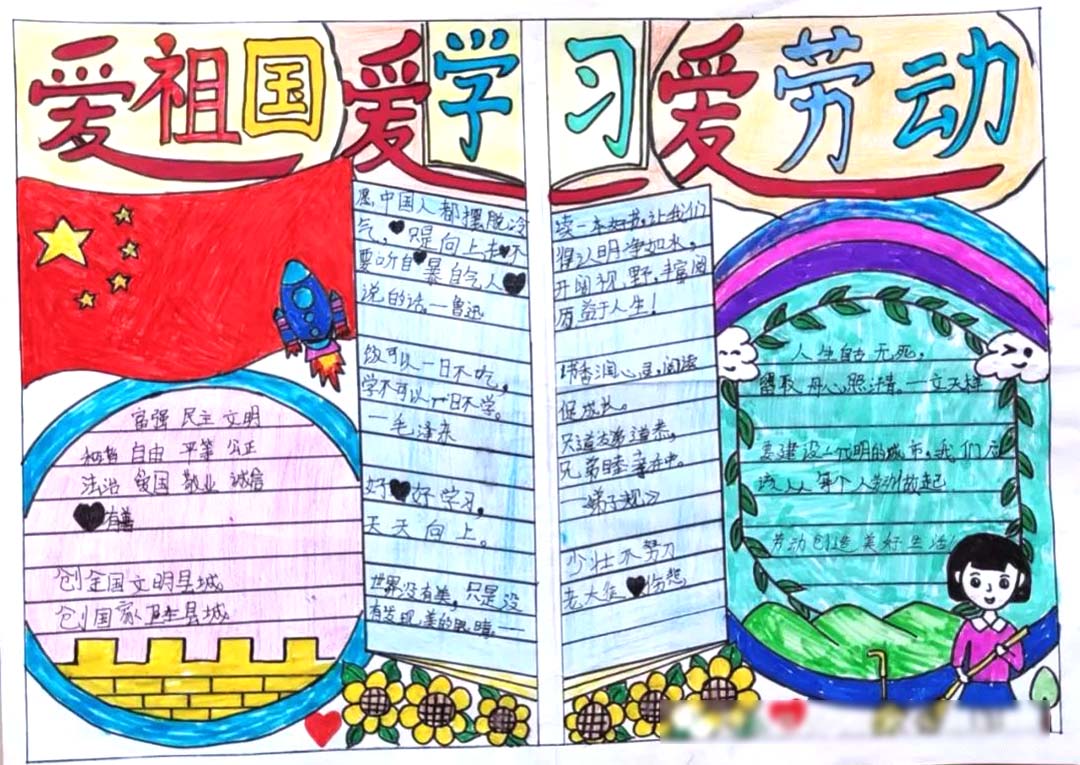 爱祖国 爱学习 爱劳动
富强 民主 文明
和谐 自由 平等 公正
法治 爱国 敬业 诚信
友善
创全国文明县城
创国家卫生县城
愿中国人都摆脱冷
气,只是向上去不
要听自暴自气人
说的话。一鲁迅
饭可以一日不吃,
学不可以一日不学。
一毛泽东
好好学习,
天天向上。
世界没有美,只是没
有发现美的眼睛。一
读一本好书,让我们
得以明净如水,
开阔视野,丰富阅
历,益于人生!
书香润心灵,阅读
促成长。
兄道友弟道恭,
兄弟睦孝在中。
《弟子规》
少壮不努力
老大徒伤悲
人生自古无死,
留取丹心照汗青。一文天祥
要建设一个文明的城市,我们应
该从每个人
做起
劳动创造美好生活!